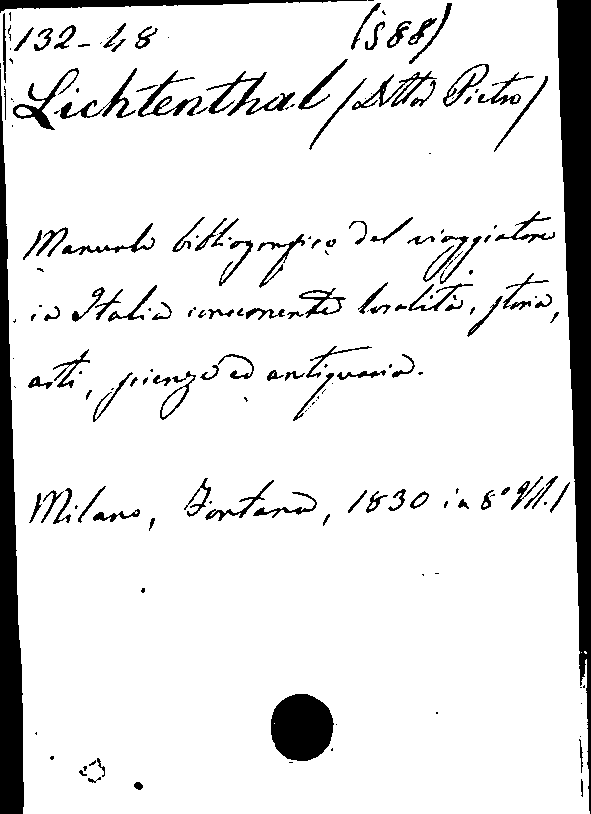 132-48 (§88)
Lichtenthal (Dttor Pietro)
Manuale bibliografico del viaggiatore
in Italia concernente località, storia,
arti, scienze ed antiquaria.
Milano, Fontana, 1830 in 8° Vol. 1